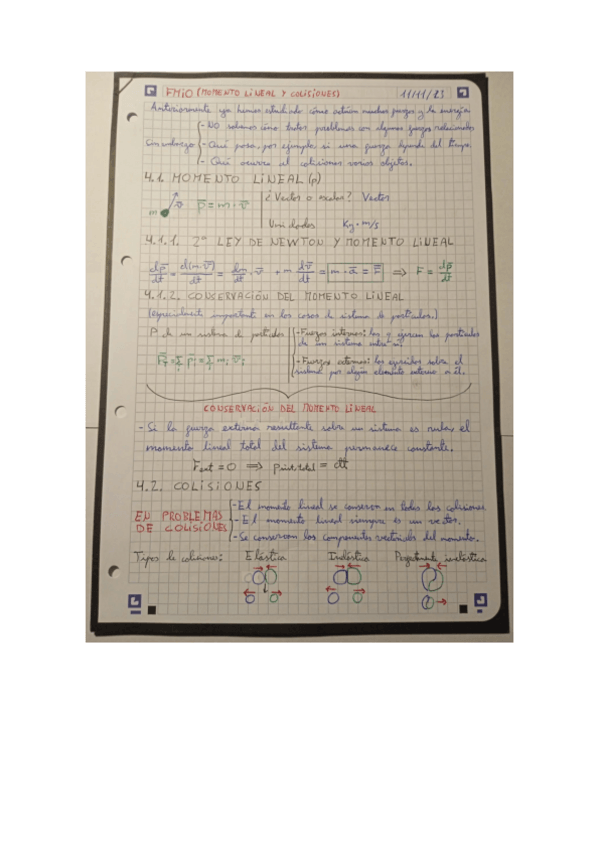 FMIO (MOMENTO LINEAL Y COLISIONES) 11/11/23
Anteriormente ya hemos estudiado cómo actúan muchas fuerzas y la energía.
Sin embargo
- NO sabemos cómo tratar problemas con algunas fuerzas relacionadas
- Qué pasa, por ejemplo, si una fuerza depende del tiempo.
- Qué ocurre si colisionan varios objetos.
4.1. MOMENTO LINEAL (p)
m v p = m · v
¿Vector o escalar? Vector
Unidades Kg · m/s
4.1.1. 2º LEY DE NEWTON Y MOMENTO LINEAL
dp/dt = d(m·v)/dt = dm/dt · v + m dv/dt = m · a = F ⇒ F = dp/dt
4.1.2. CONSERVACIÓN DEL MOMENTO LINEAL
(especialmente importante en los casos de sistema de partículas.)
P de un sistema de partículas
- Fuerzas internas: las q ejercen las partículas
de un sistema entre sí.
- Fuerzas externas: las ejercidas sobre el
sistema por algún elemento externo a él.
= Σ pi = Σ mi vi
CONSERVACIÓN DEL MOMENTO LINEAL
- Si la fuerza externa resultante sobre un sistema es nula, el
momento lineal total del sistema permanece constante.
Fext = 0 ⇒ = ctt
4.2. COLISIONES
EN PROBLEMAS
DE COLISIONES
- El momento lineal se conserva en todas las colisiones.
- El momento lineal siempre es un vector.
- Se conservan las componentes vectoriales del momento.
Tipos de colisiones: Elástica Inelástica Perfectamente inelástica